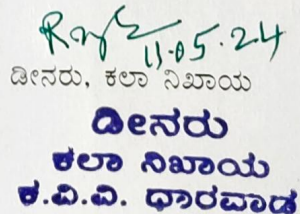 11.05.24
ಡೀನರು, ಕಲಾ ನಿಖಾಯ
ಡೀನರು
ಕಲಾ ನಿಖಾಯ
ಕ.ವಿ.ವಿ. ಧಾರವಾಡ